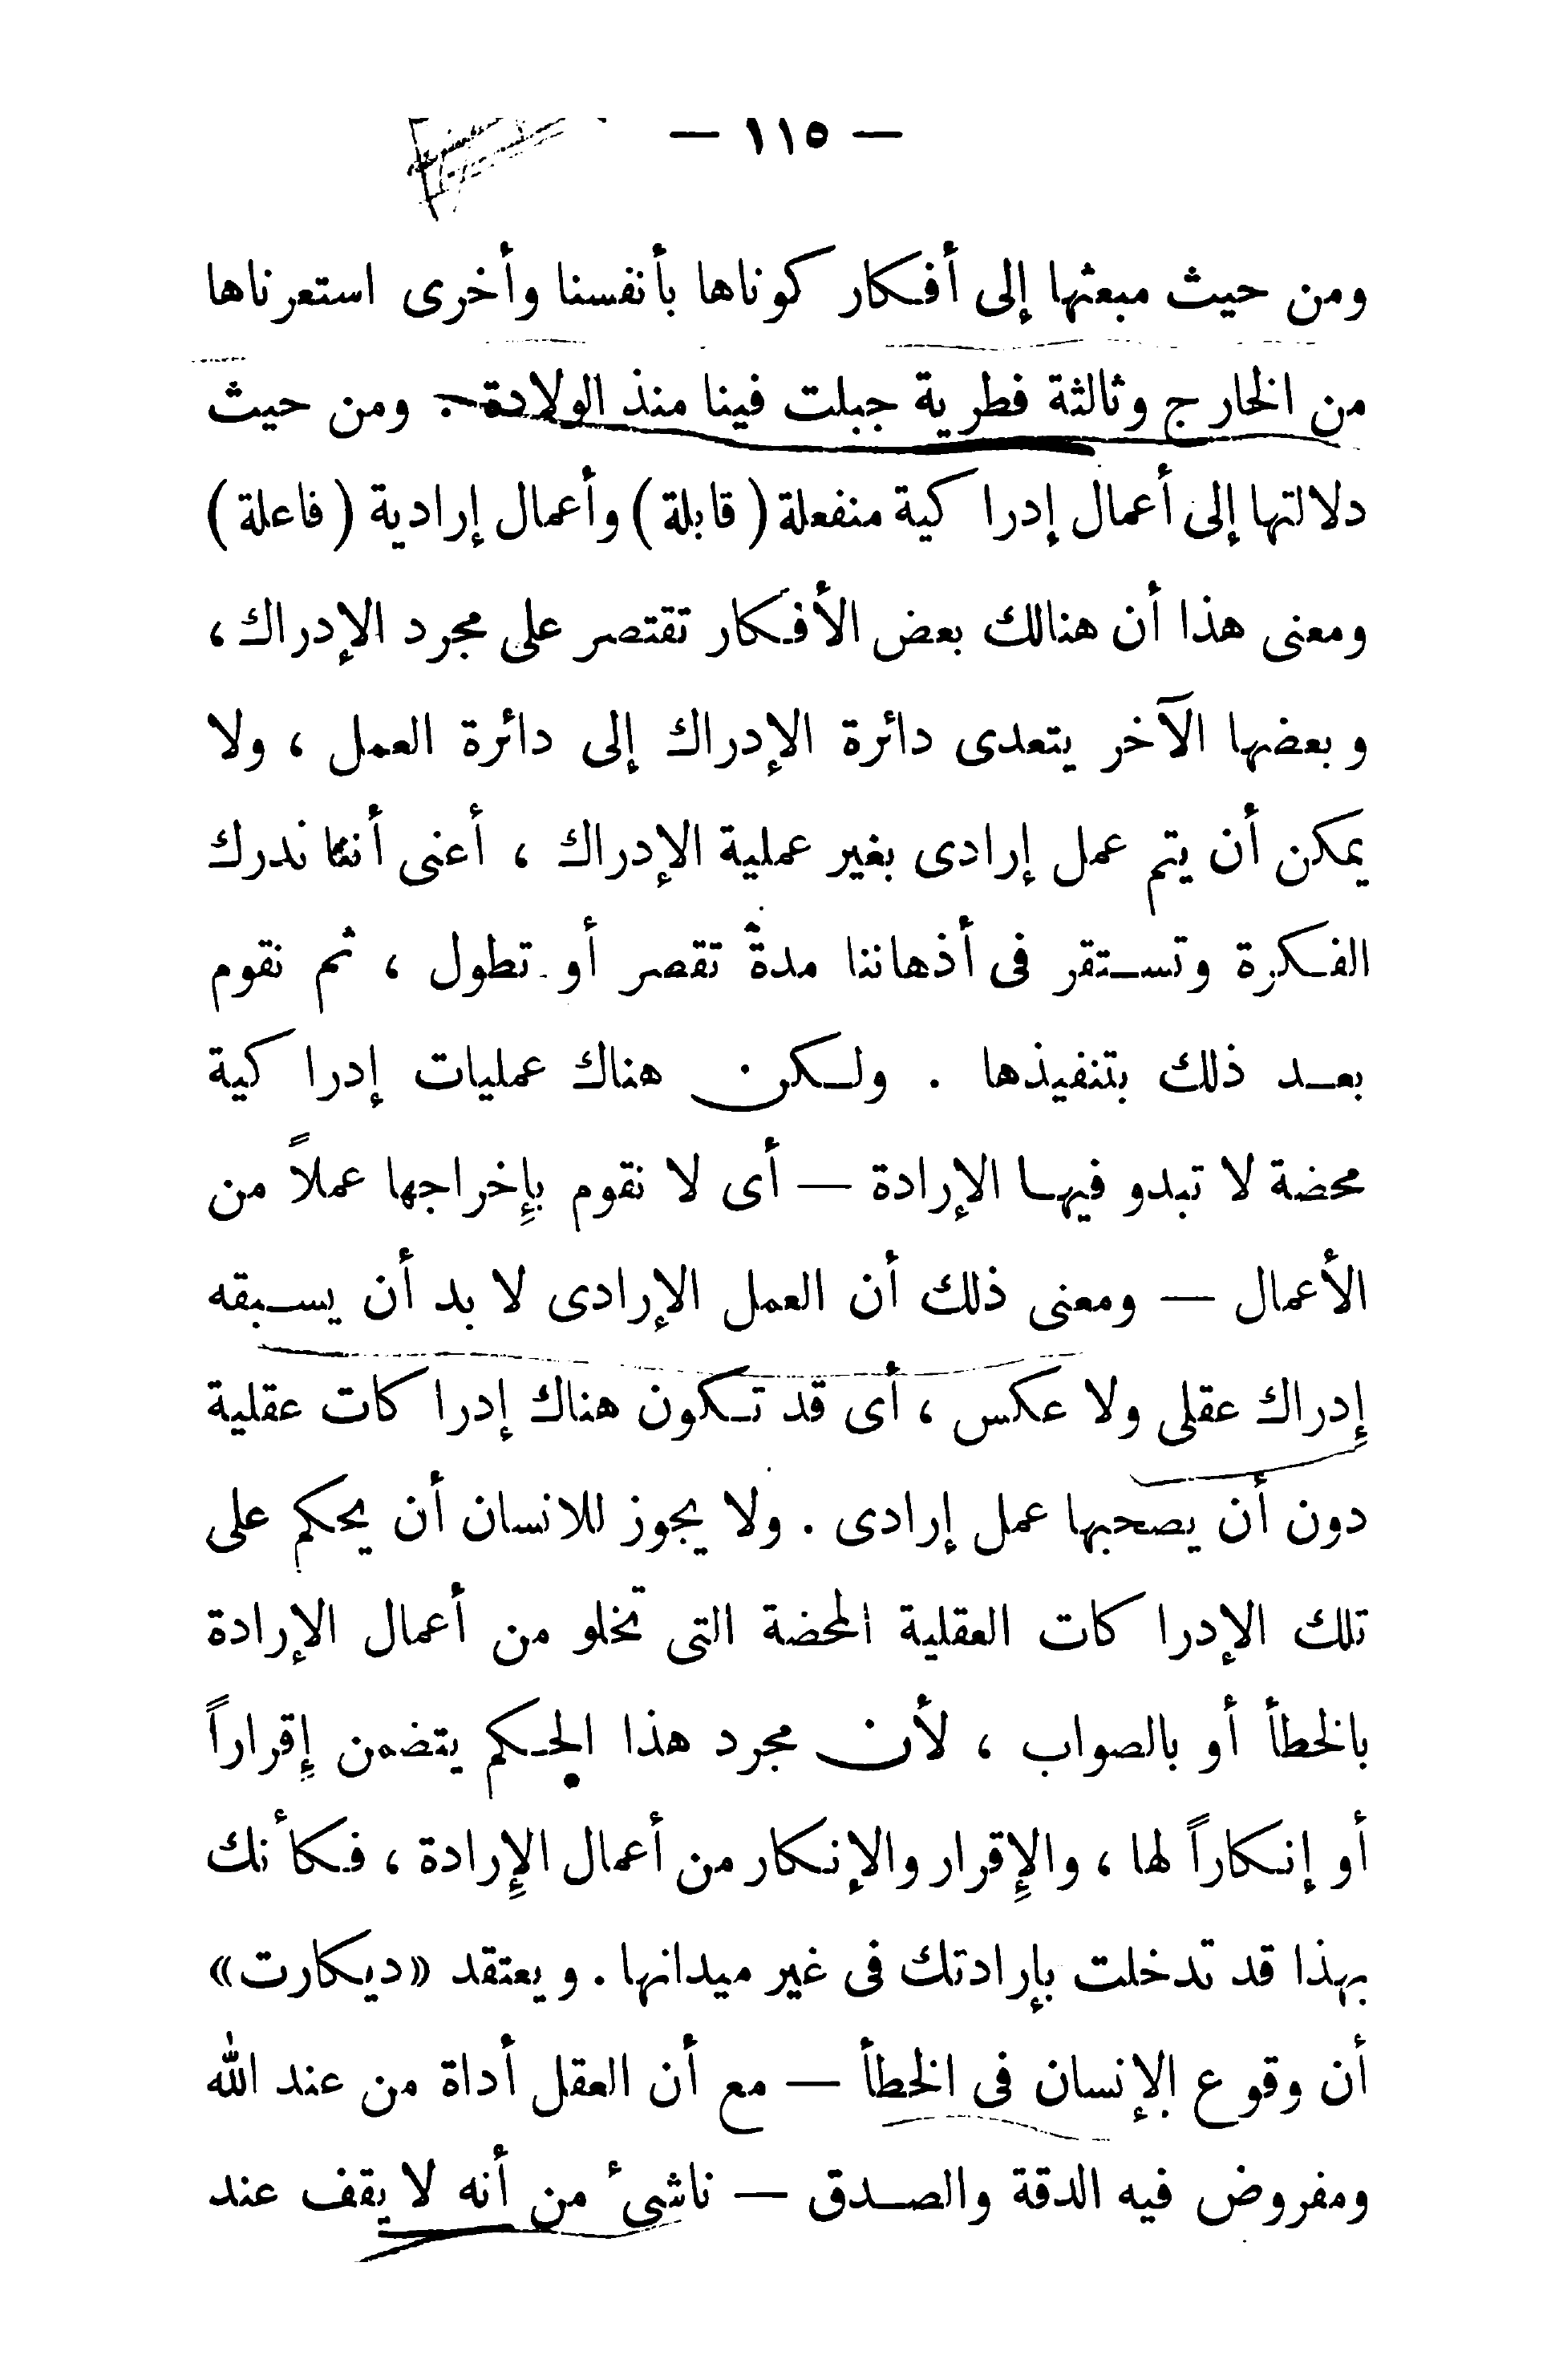 — ١١٥ —
ومن حيث مبعثها إلى أفكار كوناها بأنفسنا وأخرى استعرناها
من الخارج وثالثة فطرية جبلت فينا منذ الولادة . ومن حيث
دلالتها إلى أعمال إدراكية منفعلة ( قابلة ) وأعمال إرادية ( فاعلة )
ومعنى هذا أن هنالك بعض الأفكار تقتصر على مجرد الإدراك ،
وبعضها الآخر يتعدى دائرة الإدراك إلى دائرة العمل ، ولا
يمكن أن يتم عمل إرادى بغير عملية الإدراك ، أعنى أننا ندرك
الفكرة وتستقر فى أذهاننا مدة تقصر أو تطول ، ثم نقوم
بعد ذلك بتنفيذها . ولكن هناك عمليات إدراكية
محضة لا تبدو فيها الإرادة — أى لا نقوم بإِخراجها عملاً من
الأعمال — ومعنى ذلك أن العمل الإرادى لا بد أن يسبقه
إِدراك عقلى ولا عكس ، أى قد تكون هناك إدراكات عقلية
دون أن يصحبها عمل إرادى . ولا يجوز للانسان أن يحكم على
تلك الإدراكات العقلية المحضة التى تخلو من أعمال الإرادة
بالخطأ أو بالصواب ، لأن مجرد هذا الحكم يتضمن إِقراراً
أو إنكاراً لها ، والإِقرار والإنكار من أعمال الإِرادة ، فكأنك
بهذا قد تدخلت بإرادتك فى غير ميدانها . ويعتقد «ديكارت»
أن وقوع الإنسان فى الخطأ — مع أن العقل أداة من عند الله
ومفروض فيه الدقة والصدق — ناشىء من أنه لا يقف عند